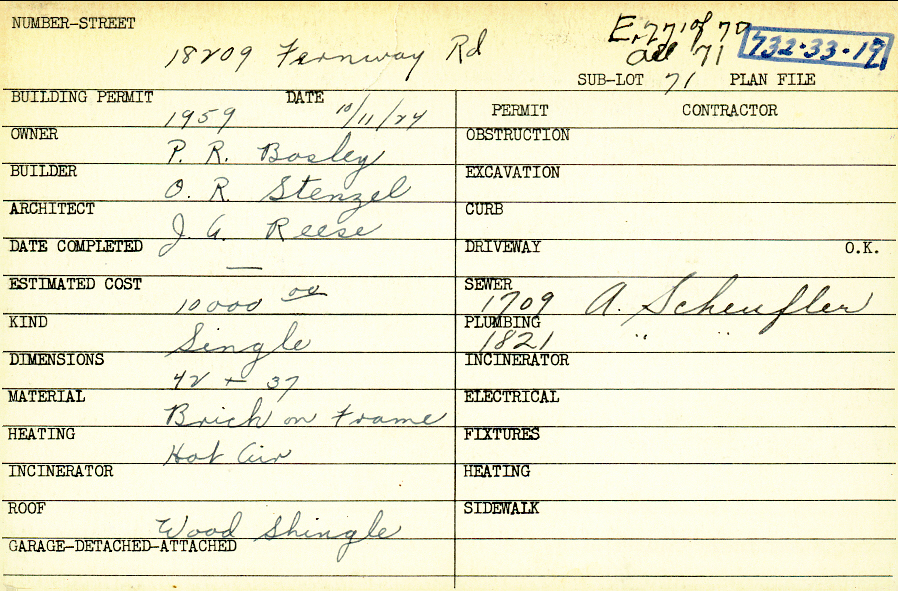 NUMBER-STREET
18209 Fernway Rd
E.77' of 70
all 71
732-33-19
SUB-LOT 71 PLAN FILE
BUILDING PERMIT 1959 DATE 10/11/24
OWNER P. R. Bosley
BUILDER O. R. Stenzel
ARCHITECT J. A. Reese
DATE COMPLETED —
ESTIMATED COST 10000 00
KIND Single
DIMENSIONS 42 + 37
MATERIAL Brick on Frame
HEATING Hot Air
INCINERATOR
ROOF Wood Shingle
GARAGE-DETACHED-ATTACHED
PERMIT CONTRACTOR
OBSTRUCTION
EXCAVATION
CURB
DRIVEWAY O.K.
SEWER 1709 A. Scheufler
PLUMBING 1821 " "
INCINERATOR
ELECTRICAL
FIXTURES
HEATING
SIDEWALK